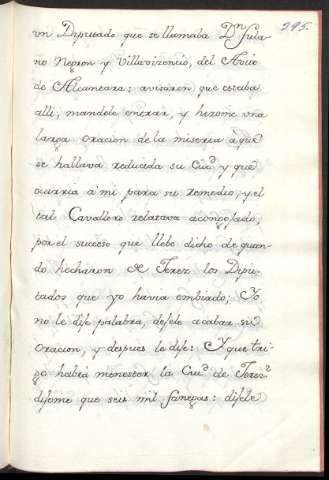 295.
un Diputado que se llamaba Dn. Fula
no Negron y Villavizencio, del Avito
de Alcantara: avisaron que estaba
alli, mandele entrar, y hizome una
larga oracion de la miseria à que
se hallava reducida su Ciud. y que
ocurria à mi para su remedio, y el
tal Cavallero estava acongojado,
por el suceso que llebo dicho de quan-
do hecharon de Jerez los Dipu-
tados que yo havia embiado; Yo
no le dije palabra, dejele acabar su
oracion, y despues le dije: Y que tri-
go habrà menester la Ciud. de Jerez?
dijome que seis mil fanegas: dijele